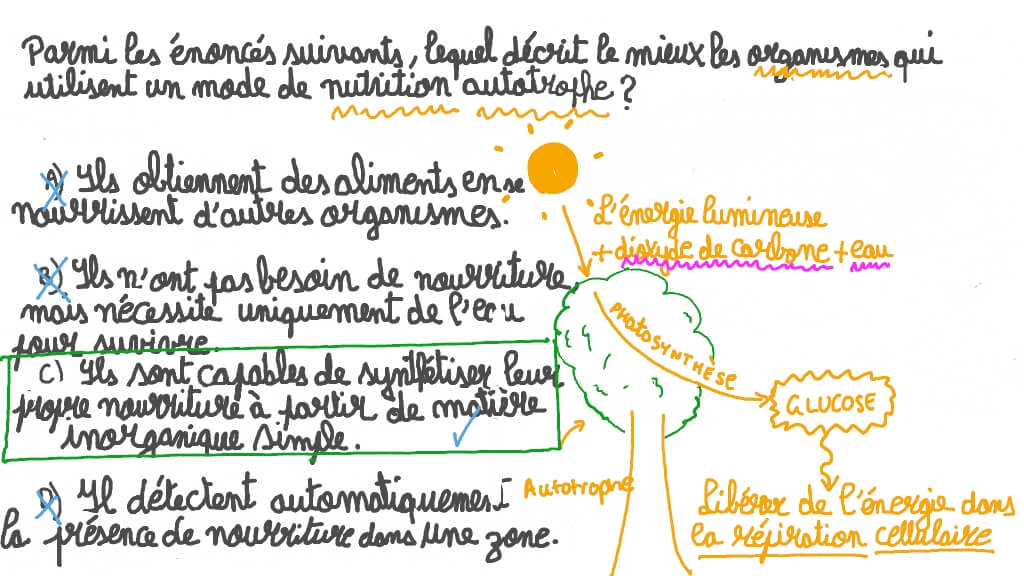 Parmi les énoncés suivants, lequel décrit le mieux les organismes qui
utilisent un mode de nutrition autotrophe ?
A) Ils obtiennent des aliments en se
nourrissent d'autres organismes.
B) Ils n'ont pas besoin de nourriture,
mais nécessité uniquement de l'eau
pour suvivre.
C) Ils sont capables de synthétiser leur
propre nourriture à partir de matière
inorganique simple.
D) Il détectent automatiquement
la présence de nourriture dans une zone.
L'énergie lumineuse
+ dioxyde de carbone + eau
PHOTOSYNTHÈSE
GLUCOSE
Autotrophe
Libérer de l'énergie dans
la répiration cellulaire